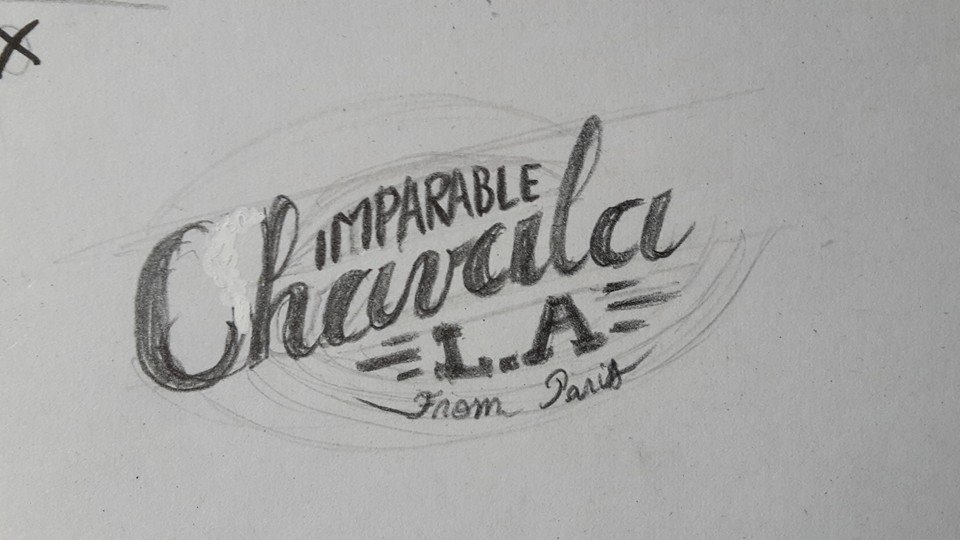 IMPARABLE
Chavala
L.A
From Paris